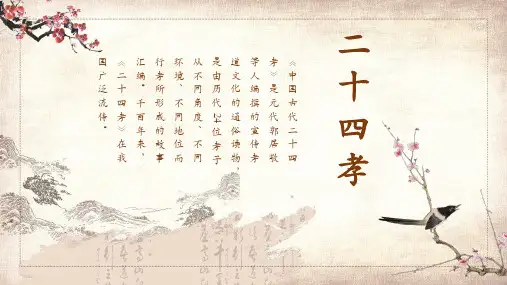 二十四孝
《中国古代二十四
孝》是元代郭居敬
等人编撰的宣传孝
道文化的通俗读物,
是由历代24位孝子
从不同角度、不同
环境、不同地位而
行孝所形成的故事
汇编。千百年来,
《二十四孝》在我
国广泛流传。